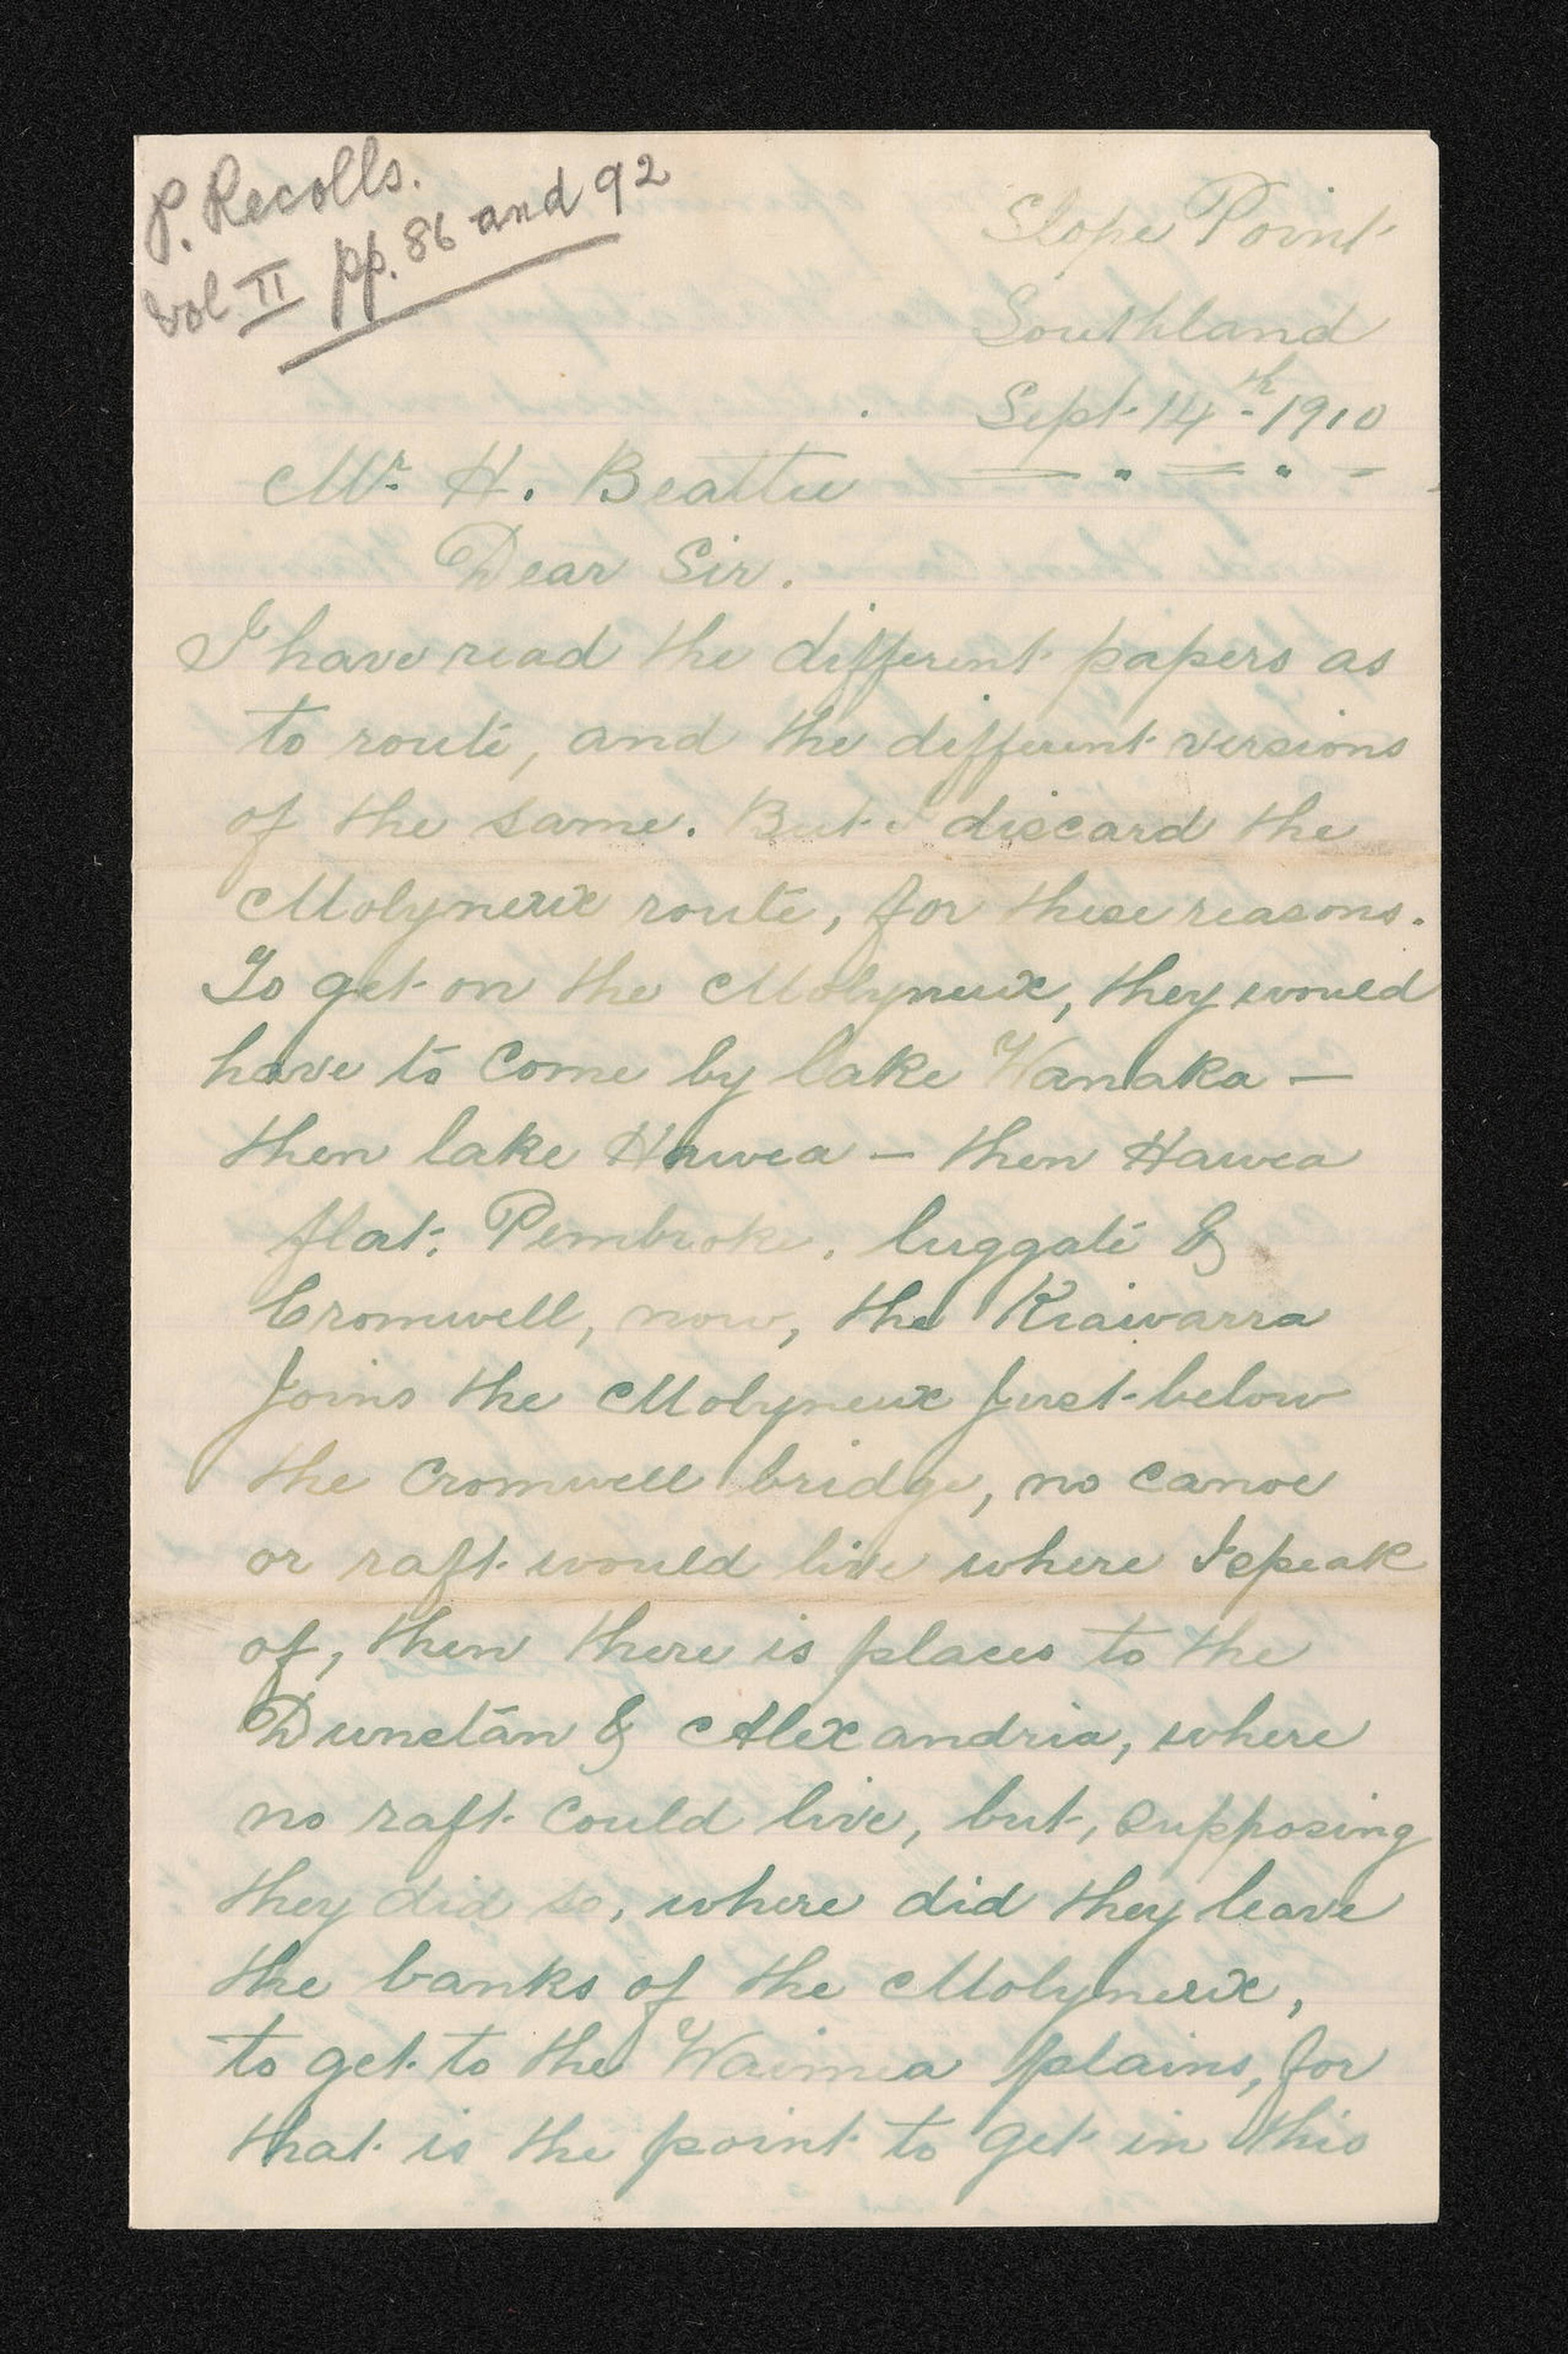 P. Recolls.
Vol II pp. 86 and 92
Slope Point
Southland
Sept. 14th 1910
Mr. H. Beattie
Dear Sir.
I have read the different papers as
to route, and the different versions
of the same. But I discard the
Molyneux route, for these reasons.
To get on the Molyneux, they would
have to Come by lake Wanaka —
then lake Hawea — then Hawea
flat, Pembroke, luggate &
Cromwell, now, the Kiawarra
Joins the Molyneux Just below
the Cromwell bridge, no canoe
or raft would live where I speak
of, then there is places to the
Dunstan & Alexandria, where
no raft Could live, but, supposing
they did so, where did they leave
the banks of the Molyneux,
to get to the Waimea plains, for
that is the point to get in this